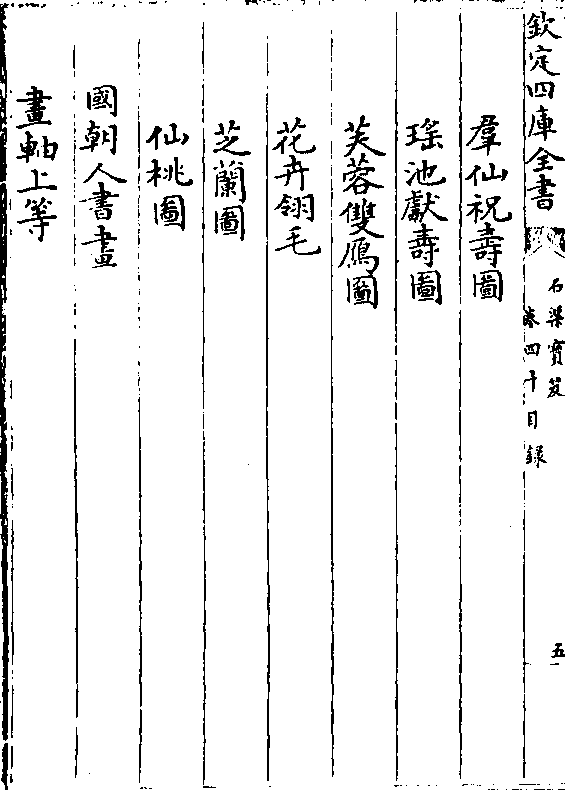 欽定四庫全書
石渠寶笈
卷四十目録
五
羣仙祝壽圖
瑶池獻壽圖
芙蓉雙鴈圖
花卉翎毛
芝蘭圖
仙桃圖
國朝人書畫
畫軸上等